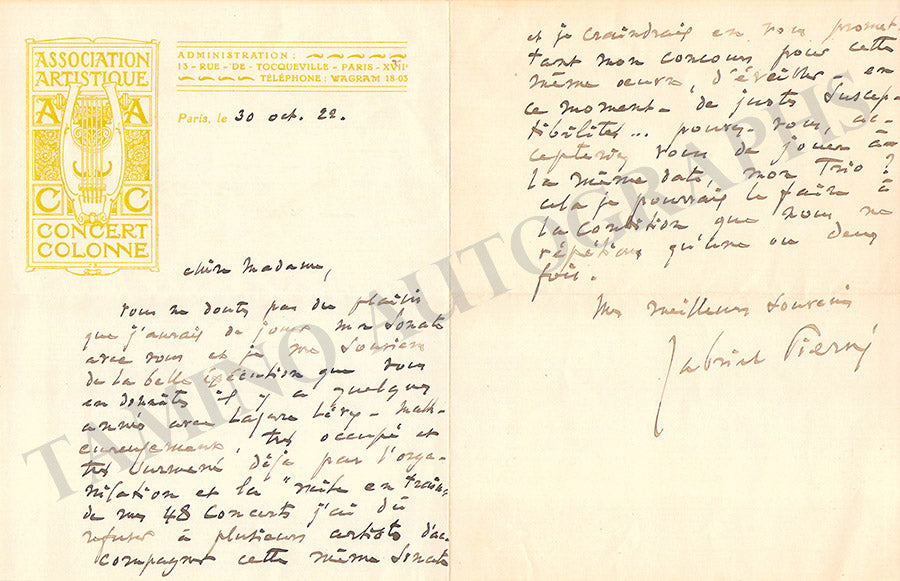 ASSOCIATION
ARTISTIQUE
A A
C C
CONCERT
COLONNE
ADMINISTRATION :
13 - RUE - DE - TOCQUEVILLE - PARIS - XVIIe
TÉLÉPHONE : WAGRAM 18-03
Paris, le 30 oct. 22.
chère Madame,
Vous ne doutez pas du plaisir
que j'aurais de jouer ma Sonate
avec vous et je me souviens
de la belle exécution que vous
en donnâtes il y a quelques
années avec Lazare Lévy - Malh-
eureusement, très occupé et
très surmené déjà par l'orga-
nisation et la "mise en train"
de mes 48 Concerts j'ai dû
refuser à plusieurs artistes d'ac-
compagner cette même Sonate
et je craindrais en vous promet-
tant mon concours pour cette
même œuvre, d'éveiller - en
ce moment - de justes suscep-
tibilités... pouvez-vous, ac-
cepteriez vous de jouer à
la même date, mon Trio ?
cela je pourrais le faire à
la condition que nous ne
répétions qu'une ou deux
fois.
Mes meilleurs souvenirs
Gabriel Pierné
TAMINO AUTOGRAPHS